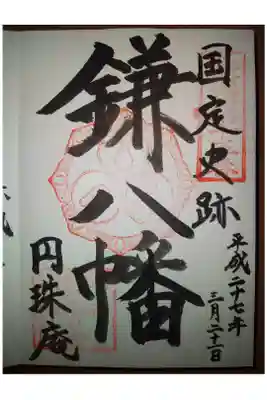 国定史跡
平成二十七年
三月二十一日
鎌八幡
円珠庵